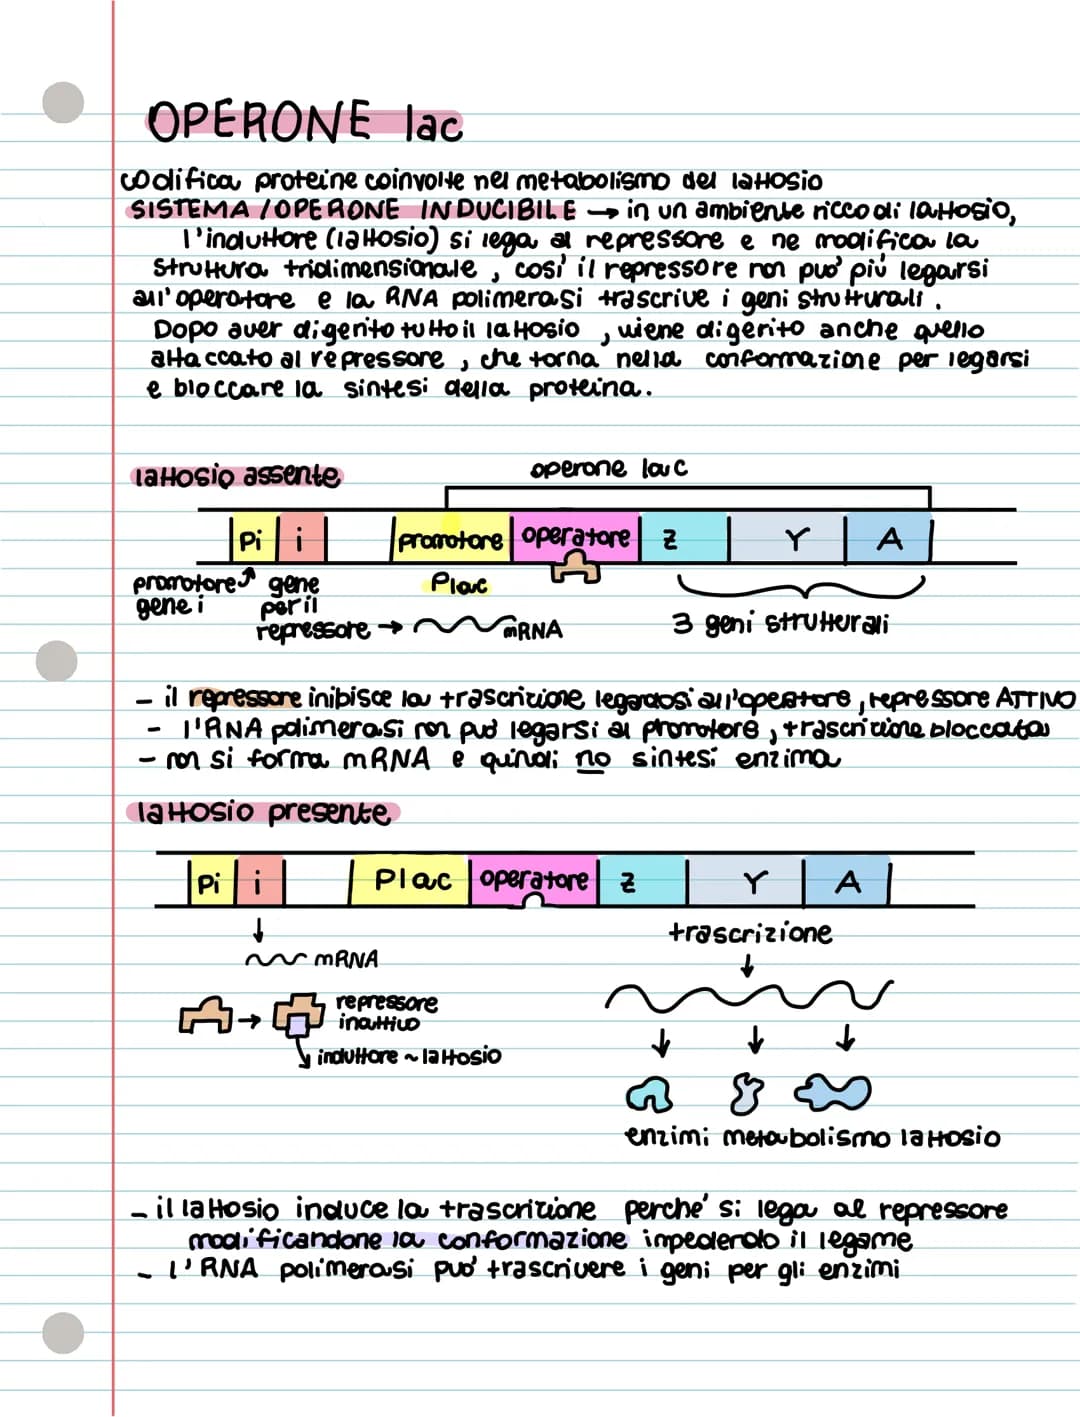 OPERONE lac
codifica proteine coinvolte nel metabolismo del lattosio
SISTEMA/OPERONE INDUCIBILE → in un ambiente ricco di lattosio,
l'induttore (lattosio) si lega al repressore e ne modifica la
struttura tridimensionale, così il repressore non può più legarsi
all'operatore e la RNA polimerasi trascrive i geni strutturali.
Dopo aver digerito tutto il lattosio, viene digerito anche quello
attaccato al repressore, che torna nella conformazione per legarsi
e bloccare la sintesi della proteina.
lattosio assente
operone lac
Pi i promotore operatore Z Y A
promotore gene i
gene per il repressore → mRNA
Plac
3 geni strutturali
- il repressore inibisce la trascrizione legandosi all'operatore, repressore ATTIVO
- l'RNA polimerasi non può legarsi al promotore, trascrizione bloccata
- non si forma mRNA e quindi no sintesi enzima
lattosio presente
Pi i Plac operatore Z Y A
↓
mRNA
trascrizione
↓
→ repressore
inattivo
induttore ~ lattosio
↓ ↓ ↓
enzimi metabolismo lattosio
- il lattosio induce la trascrizione perché si lega al repressore
modificandone la conformazione impedendo il legame
- l'RNA polimerasi può trascrivere i geni per gli enzimi